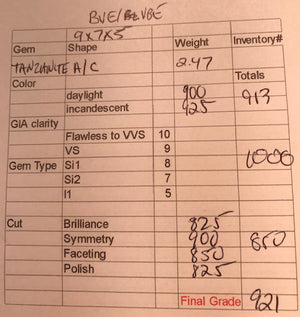 BVE/ VBE
9x7x5
Gem Shape Weight Inventory#
TANZANITE A/C 2.47
Color Totals
daylight 900 913
incandescent 925
GIA clarity
Flawless to VVS 10
VS 9
Gem Type Si1 8 1000
Si2 7
I1 5
Cut Brilliance 825
Symmetry 900 850
Faceting 850
Polish 825
Final Grade 921